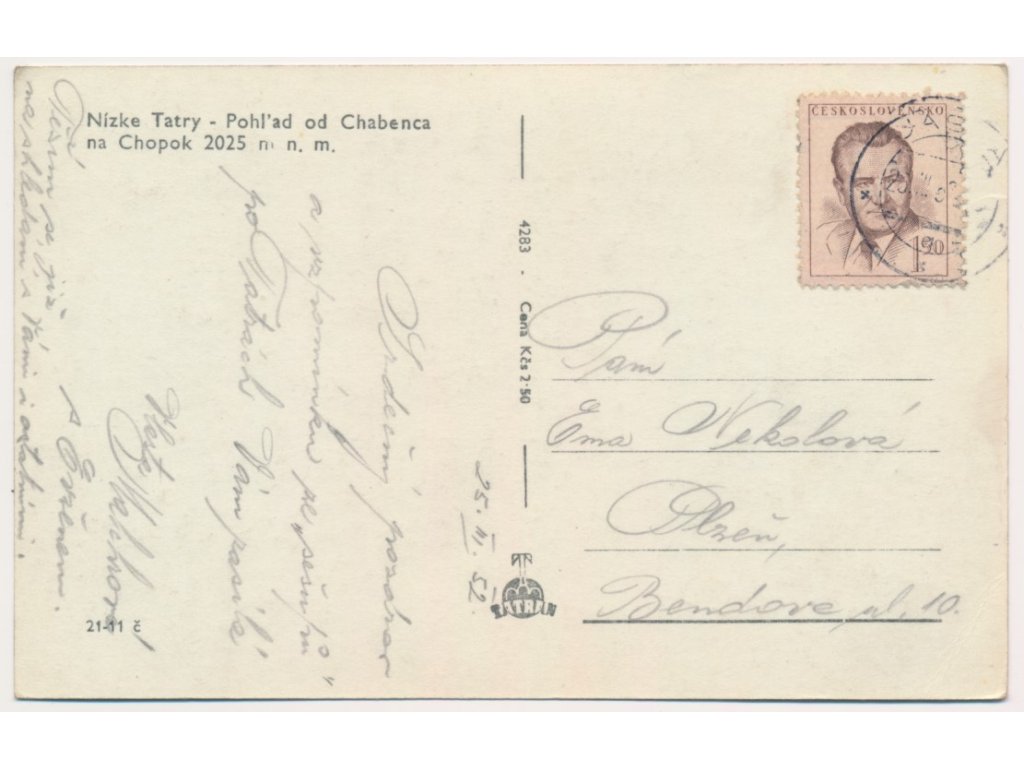 Nízke Tatry - Pohľad od Chabenca
na Chopok 2025 m n. m.
ČESKOSLOVENSKO
1.50
Kčs
4283 · Cena Kčs 2·50
TATRAN
21-11 č
25. III. 52.
Srdečný pozdrav
a vzpomínku ze „sešupu“
po Tatrách Vám posílá
s Evženem.
Těším se již
na shledání s Vámi i ostatními.
Paní
Ema Nekolová
Plzeň,
Bendova ul. 10.